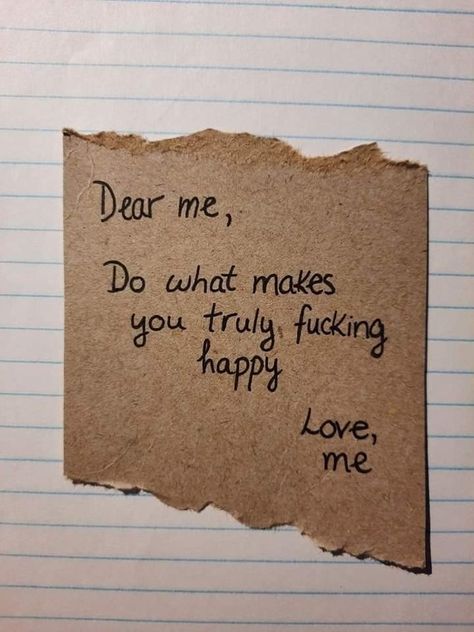 Dear me,
Do what makes
you truly fucking
happy
Love,
me